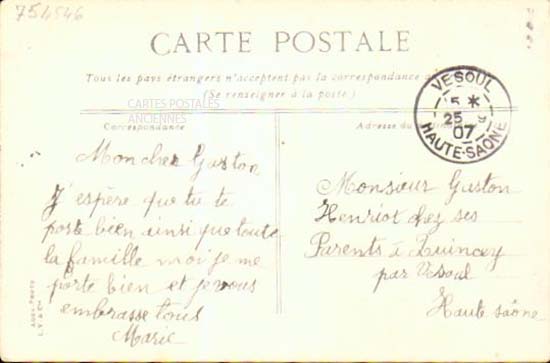 754546
CARTE POSTALE
Tous les pays étrangers n'acceptent pas la correspondance
(Se renseigner à la poste.)
CARTES POSTALES
ANCIENNES
Correspondance
Adresse du
VESOUL
5 *
25
07
HAUTE-SAÔNE
Mon cher Gaston
J'espère que tu te
porte bien ainsi que toute
la famille moi je me
porte bien et je vous
embrasse tous
Marie
Monsieur Gaston
Henriot chez ses
Parents à Quincey
par Vesoul
Haute saône
L.V & Cie